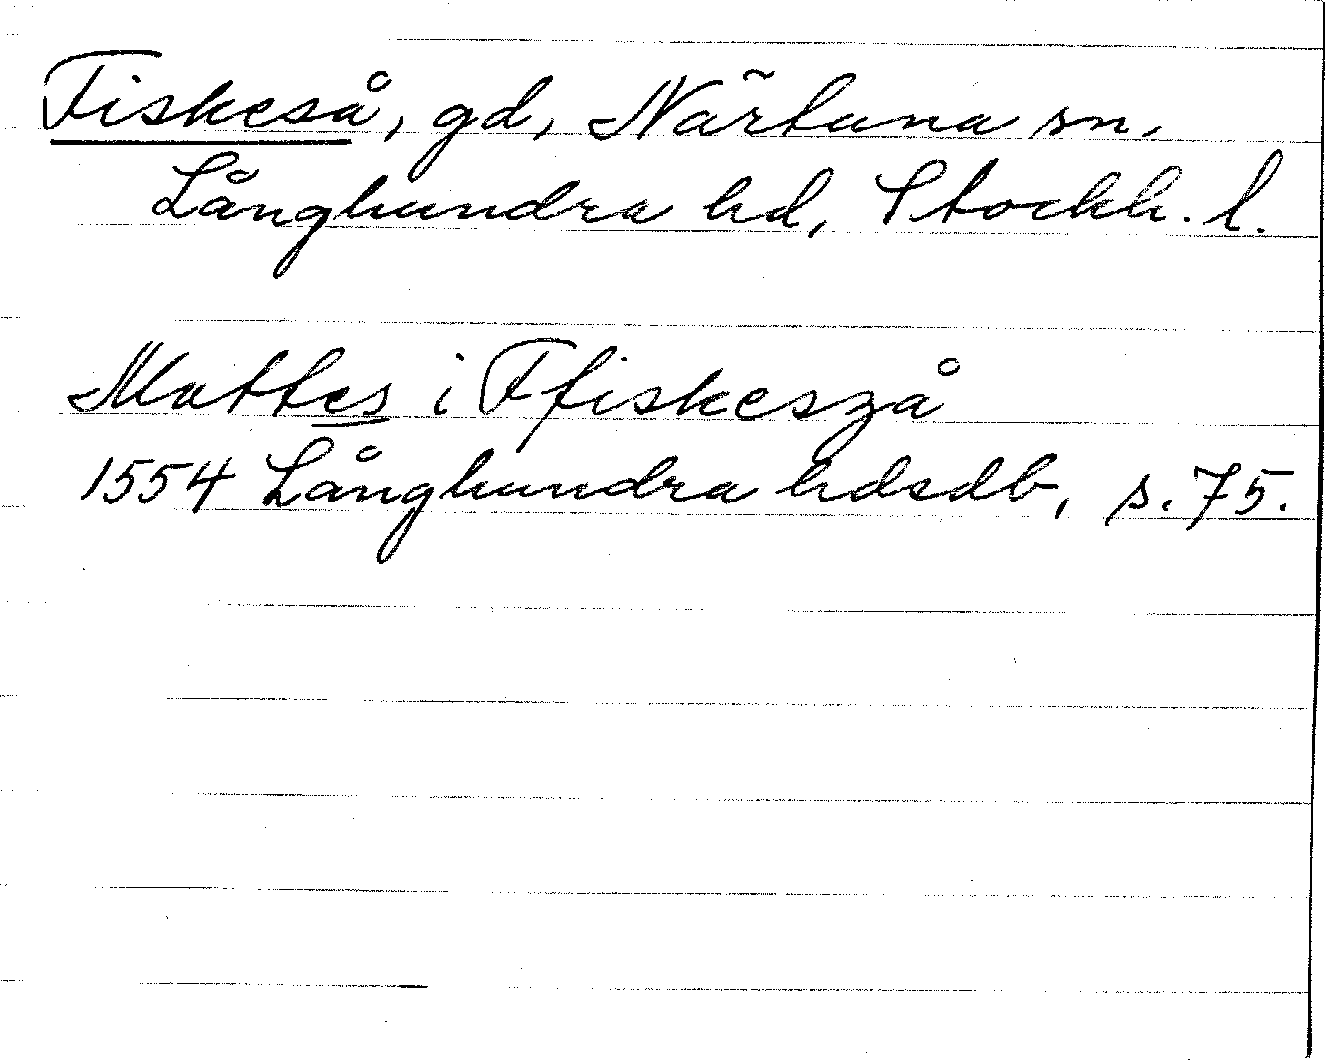 Fiskeså, gd, Närtuna sn,
Långhundra hd, Stockh. l.
Mattes i Ffiskeszå
1554 Långhundra hdsdb, s. 75.